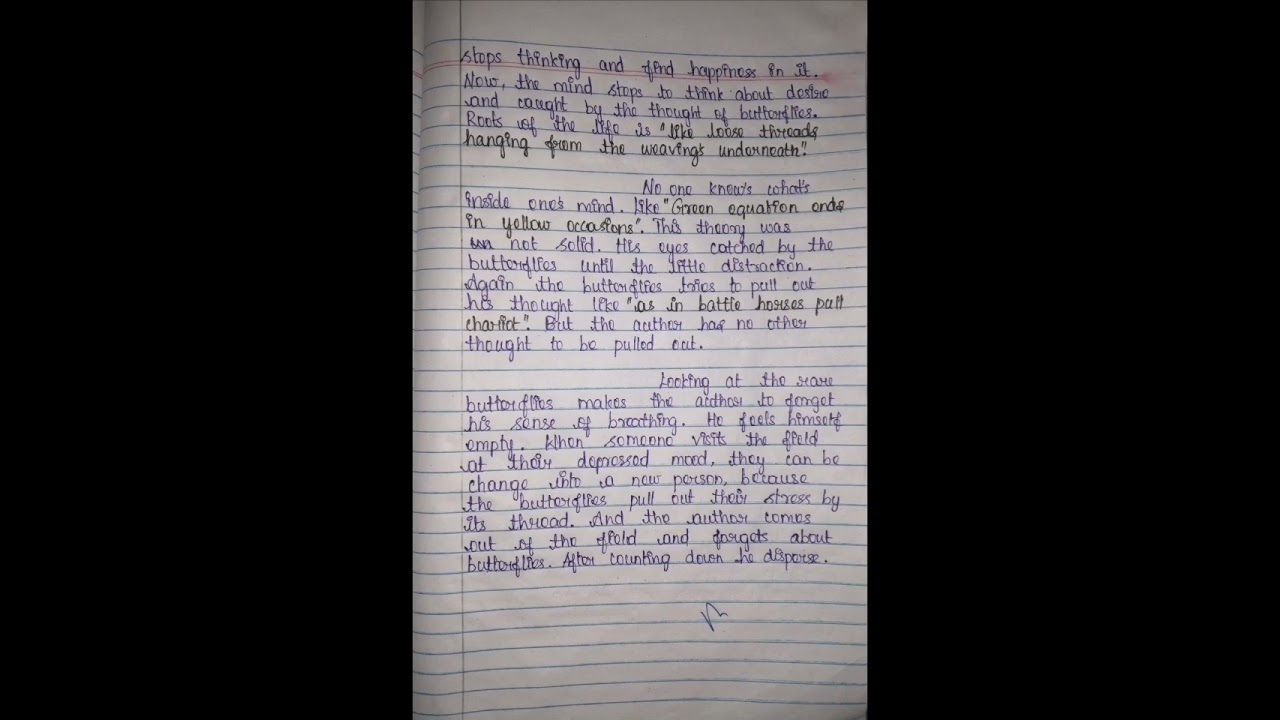 stops thinking and find happiness in it.
Now, the mind stops to think about desire
and caught by the thought of butterflies.
Roots of the life is "like loose threads
hanging from the weaving's underneath".
No one know's what's
inside one's mind. like "Green equation ends
in yellow occasions". This theory was
not solid. His eyes catched by the
butterflies until the little distraction.
Again the butterflies tries to pull out
his thought like "as in battle horses pull
chariot". But the author has no other
thought to be pulled out.
Looking at the rare
butterflies makes the author to forget
his sense of breathing. He feels himself
empty. When someone visits the field
at their depressed mood, they can be
change into a new person, because
the butterflies pull out their stress by
its thread. And the author comes
out of the field and forgets about
butterflies. After counting down he disperse.